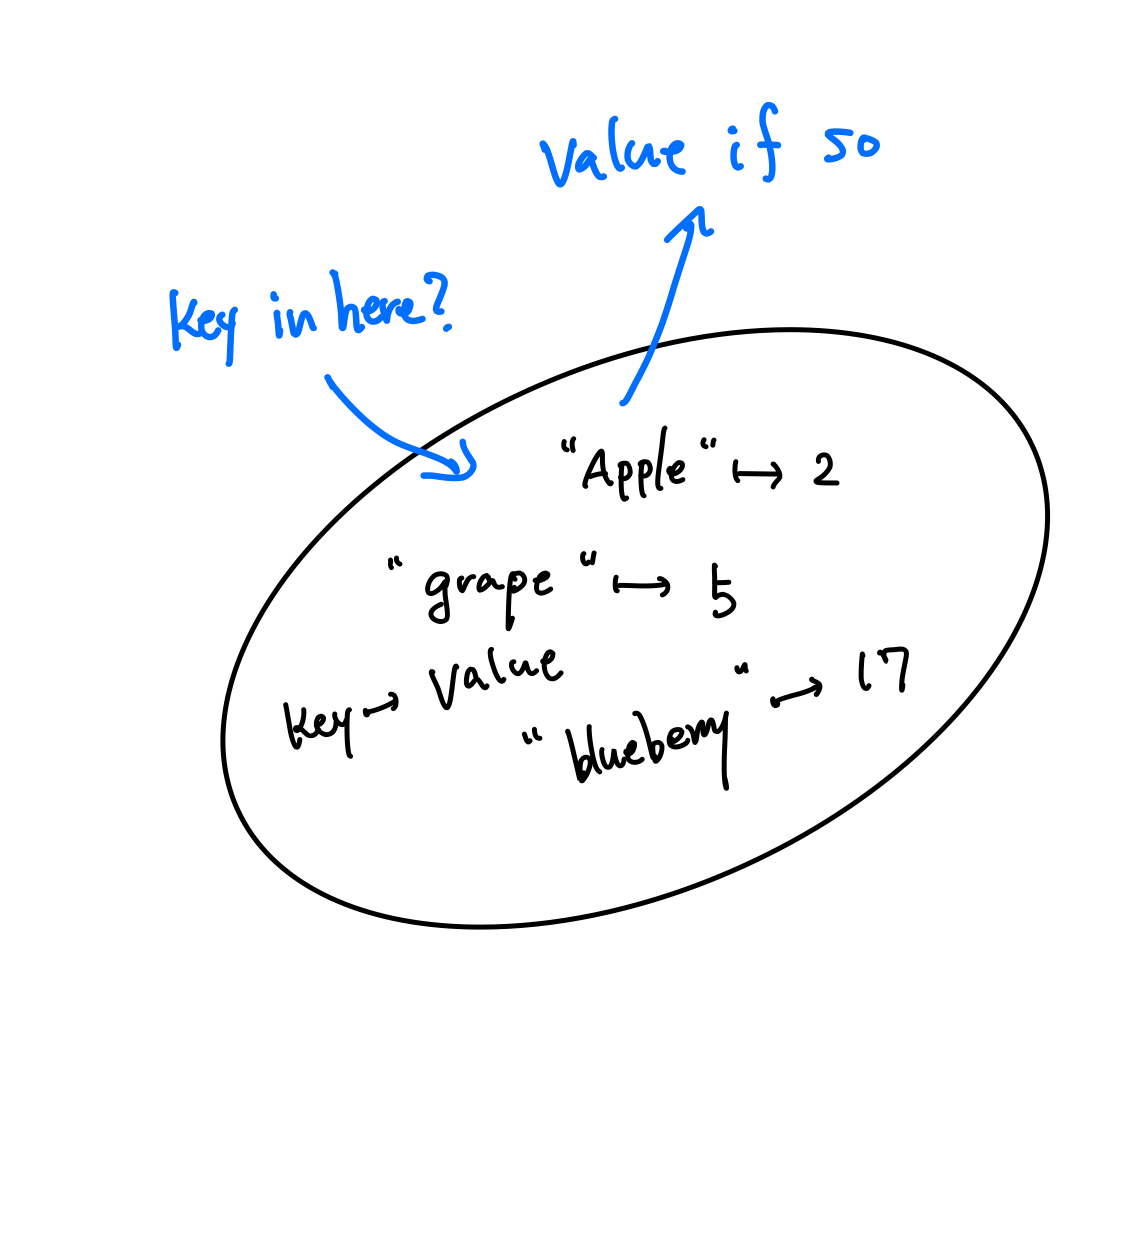 Value if so
Key in here?
"Apple" ↦ 2
"grape" ↦ 5
Key ↦ Value
"blueberry" ↦ 17